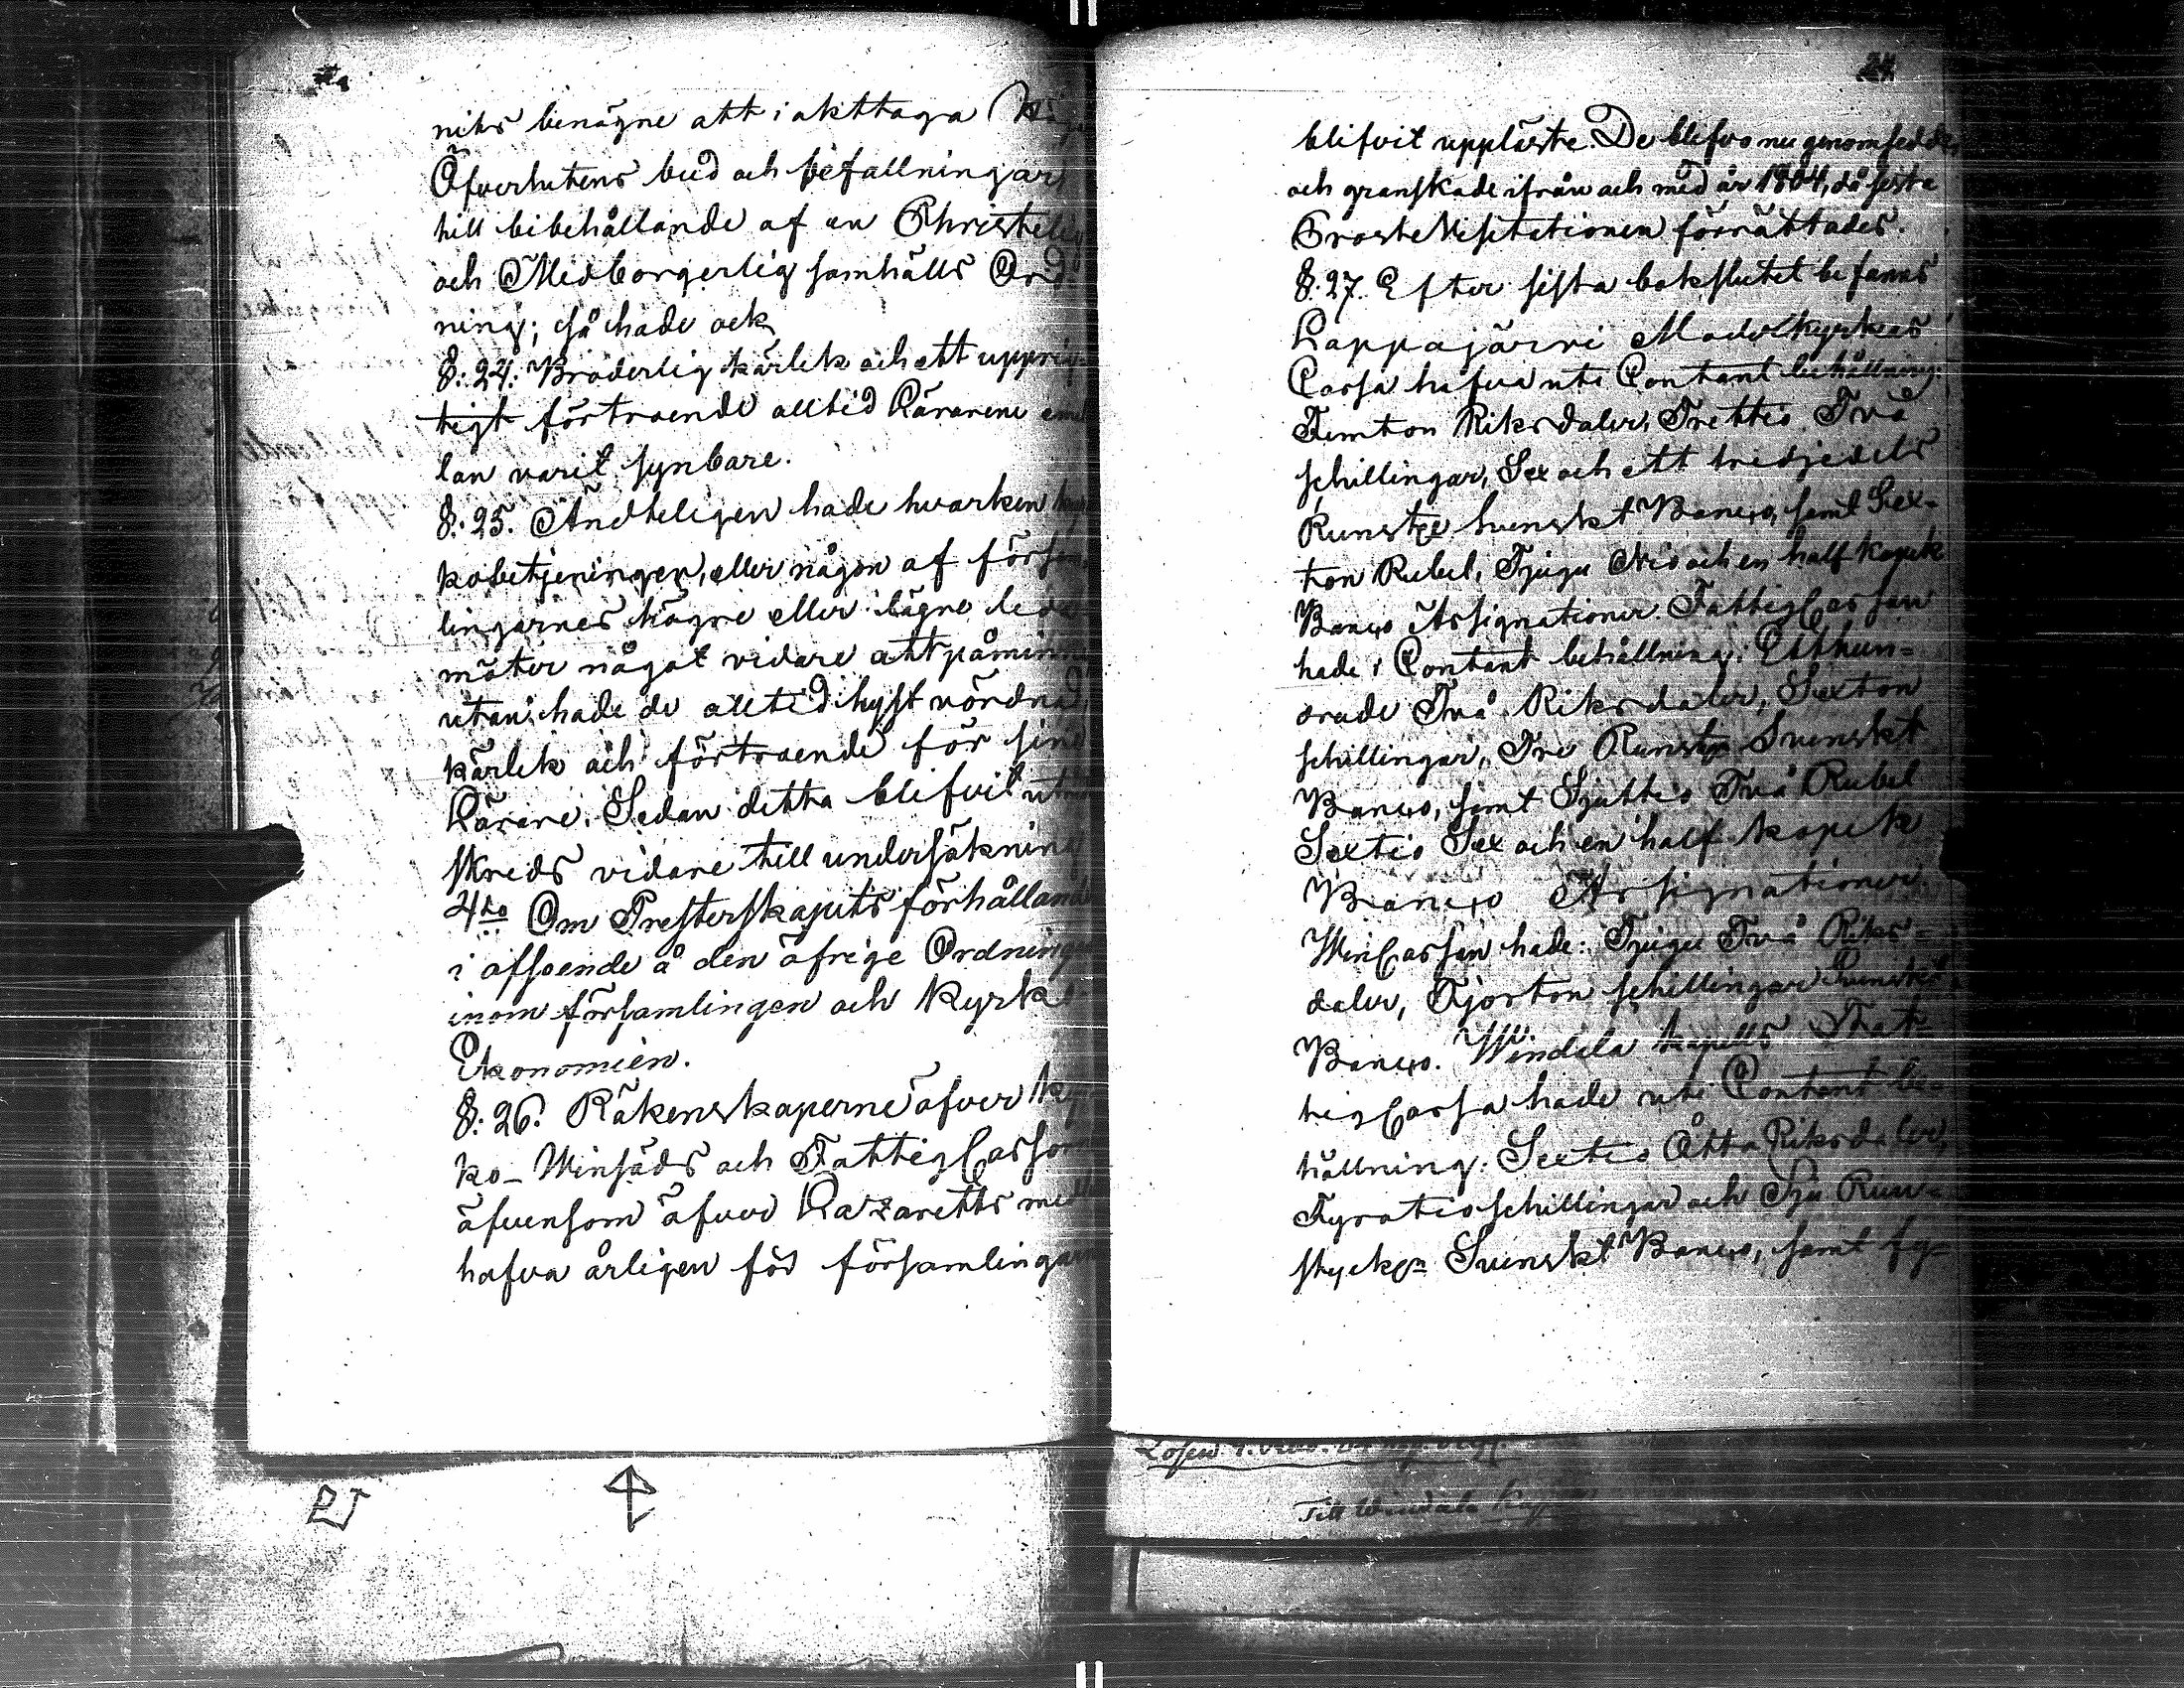 nits benägne att i akttaga
Öfverhetens bud och befallningar
till bibehållande af en Christelig
och Medborgerlig samhälls Ord-
ning; så hade ock
§: 24: Broderlig kärlek och ett upprig-
tigt förtroende alltid Lärarene emel
lan varit synbare.
§: 25. Ändteligen hade hvarken
kobetjeningen, eller någon af försam
lingarnes högre eller lägre leda
möter något vidare att påminna
utan hade de alltid hyst vördnad,
kärlek och förtroende för sine
Lärare. Sedan detta blifvit
skreds vidare till undersökning
4to Om Presterskapets förhållande
i afseende å den öfrige Ordningen
inom församlingen och Kyrko-
Ekonomien.
§: 26. Räkenskaperne öfver
ko- Winsäds och Fattig Cassor
äfvensom öfver Lazaretts
hafva årligen för församlingarne
24.
blifvit uppläste. De blefvo nu genomsedde,
och granskade ifrån och med år 1804, då sista
Proste Visitationen förrättades.
§. 27. Efter sista bokslutet befanns
Lappajärvi Moderkyrkas
Cassa hafva uti Contant behållning:
Femton Riksdaler, Trettio Två
schillingar, Sex och ett tredjedels
Runst: Svenskt Banco, samt Sex-
ton Rubel, Tjugu Nio och en half Kopek
Banco Assignationer. Fattig Cassan
hade i Contant behållning: Etthun-
drade Två Riksdaler, Sexton
schillingar, Tre Runst: Svenskt
Banco, samt Sjuttio Två Rubel
Sextio Sex och en half kopek
Banco Assignationer.
Win Cassan hade: Tjugu Två Riks-
daler, Fjorton schillingar Svenskt
Banco. Windala kapells Fat-
tig Cassa hade uti Contant be-
hållning: Sextio Åtta Riksdaler,
Fyratio schillingar och Sju Run-
stycken Svenskt Banco, samt fy-
Till Windala